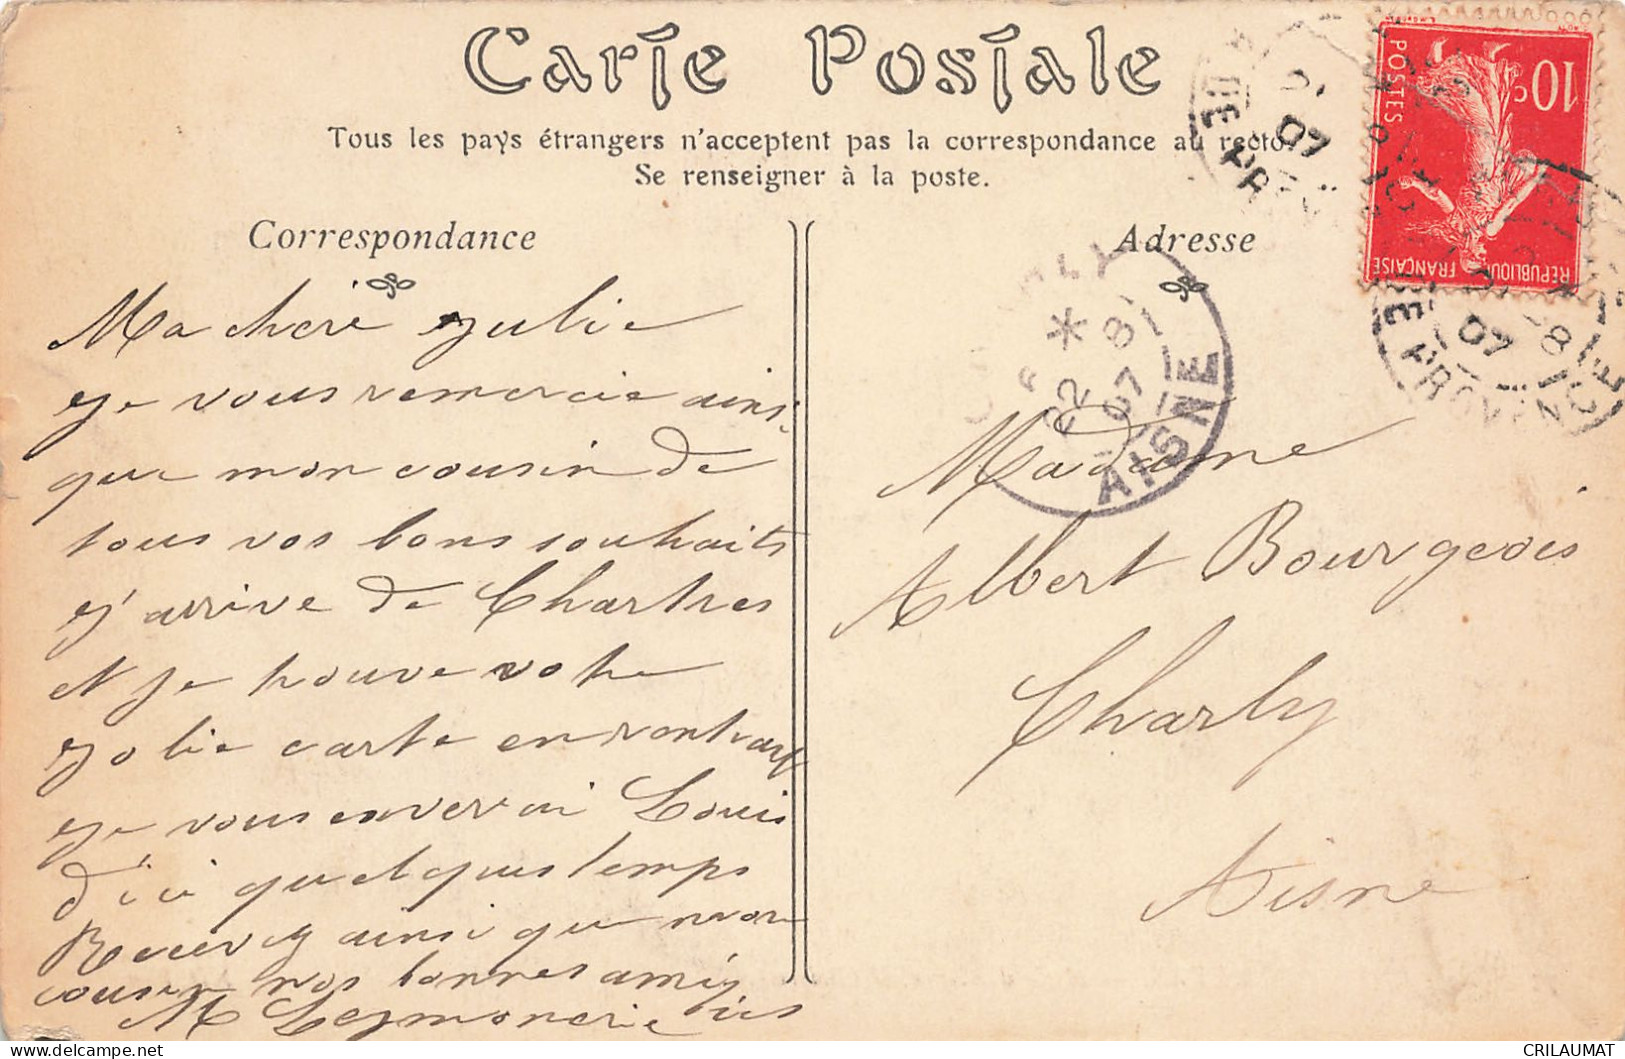 Carte Postale
Tous les pays étrangers n'acceptent pas la correspondance au recto.
Se renseigner à la poste.
Correspondance
Ma chere Julie
Je vous remercie ainsi
que mon cousin de
tous vos bons souhaits
J'arrive de Chartres
et je trouve votre
Jolie carte en rentrant
Je vous enverai Louis
d'ici quelques temps
Recevez ainsi que mon
cousin nos bonnes amis
tiés
M Leymonerie
Adresse
Madame
Albert Bourgeois
Charly
Aisne
10c
POSTES
REPUBLIQUE FRANÇAISE
CHARLY
*
22 8
07
AISNE
07
RUE DE PROVENCE
07
CRILAUMAT